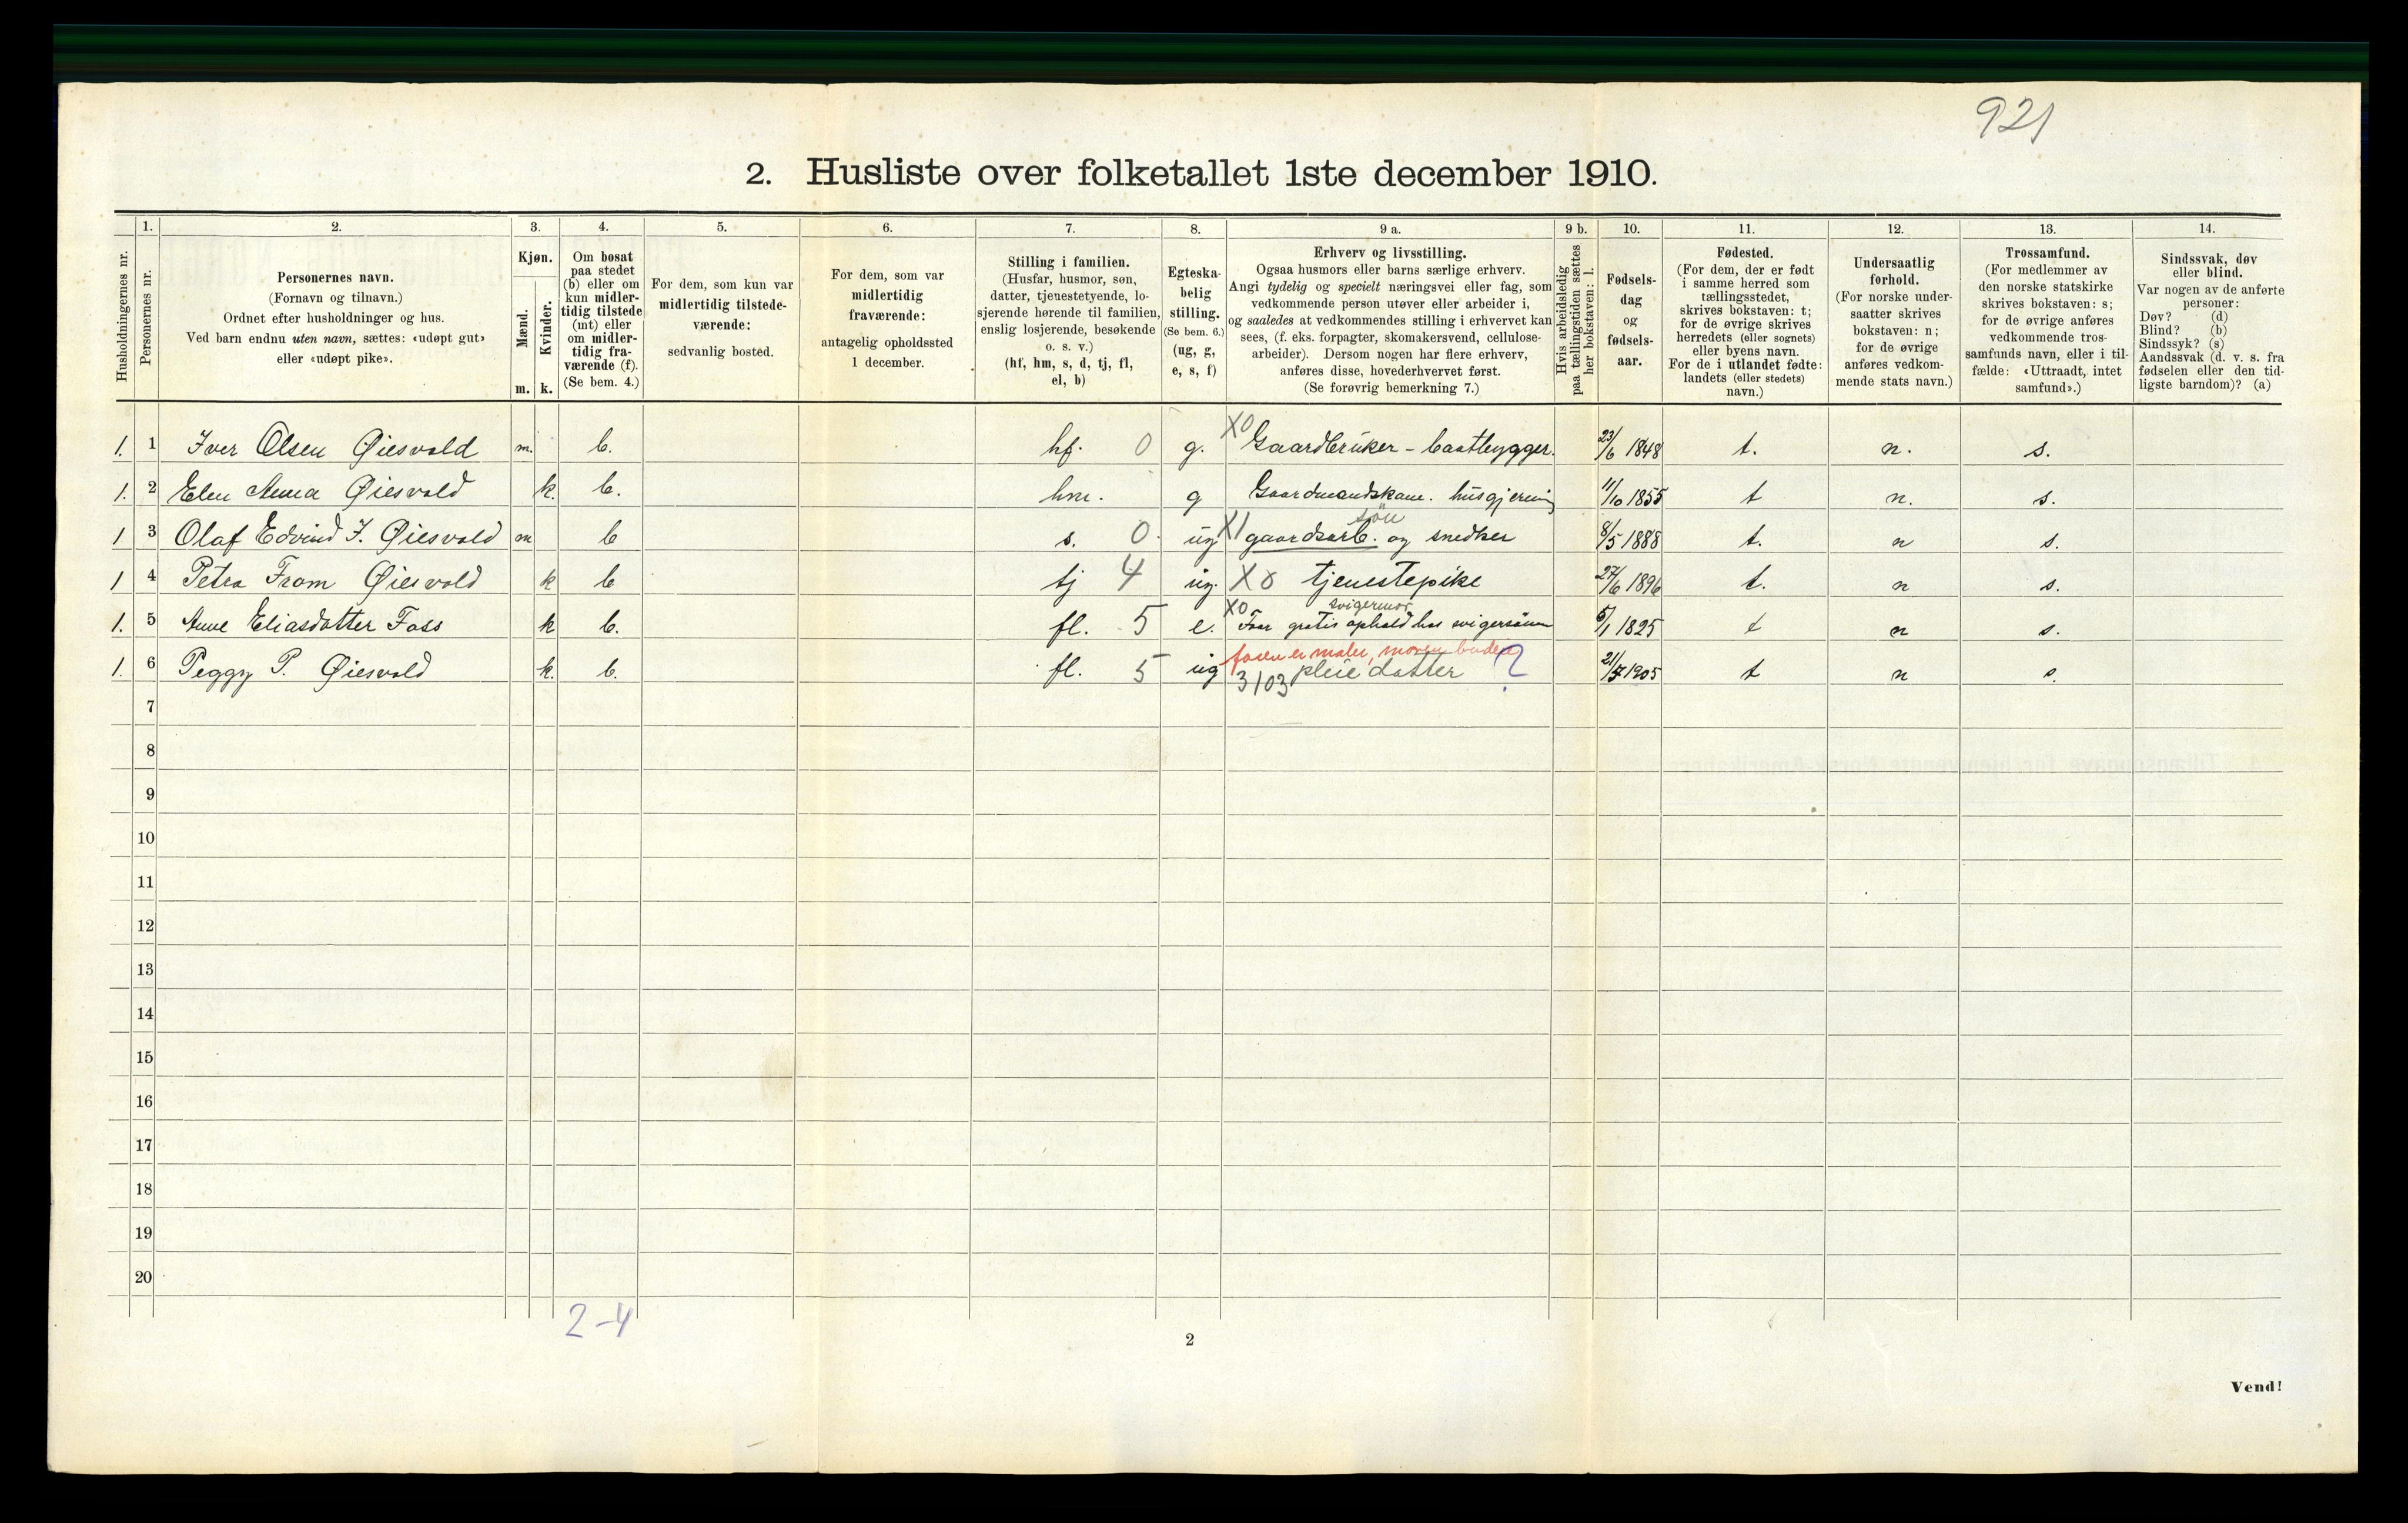 921
2. Husliste over folketallet 1ste december 1910.
Husholdningernes nr.
1.
Personernes nr.
2.
Personernes navn.
(Fornavn og tilnavn.)
Ordnet efter husholdninger og hus.
Ved barn endnu uten navn, sættes: «udøpt gut»
eller «udøpt pike».
3.
Kjøn.
Mænd.
Kvinder.
m. k.
4.
Om bosat
paa stedet
(b) eller om
kun midler-
tidig tilstede
(mt) eller
om midler-
tidig fra-
værende (f).
(Se bem. 4.)
5.
For dem, som kun var
midlertidig tilstede-
værende:
sedvanlig bosted.
6.
For dem, som var
midlertidig
fraværende:
antagelig opholdssted
1 december.
7.
Stilling i familien.
(Husfar, husmor, søn,
datter, tjenestetyende, lo-
sjerende hørende til familien,
enslig losjerende, besøkende
o. s. v.)
(hf, hm, s, d, tj, fl,
el, b)
8.
Egteska-
belig
stilling.
(Se bem. 6.)
(ug, g,
e, s, f)
9 a.
Erhverv og livsstilling.
Ogsaa husmors eller barns særlige erhverv.
Angi tydelig og specielt næringsvei eller fag, som
vedkommende person utøver eller arbeider i,
og saaledes at vedkommendes stilling i erhvervet kan
sees, (f. eks. forpagter, skomakersvend, cellulose-
arbeider). Dersom nogen har flere erhverv,
anføres disse, hovederhvervet først.
(Se forøvrig bemerkning 7.)
9 b.
Hvis arbeidsledig
paa tællingstiden sættes
her bokstaven: l.
10.
Fødsels-
dag
og
fødsels-
aar.
11.
Fødested.
(For dem, der er født
i samme herred som
tællingsstedet,
skrives bokstaven: t;
for de øvrige skrives
herredets (eller sognets)
eller byens navn.
For de i utlandet fødte:
landets (eller stedets)
navn.)
12.
Undersaatlig
forhold.
(For norske under-
saatter skrives
bokstaven: n;
for de øvrige
anføres vedkom-
mende stats navn.)
13.
Trossamfund.
(For medlemmer av
den norske statskirke
skrives bokstaven: s;
for de øvrige anføres
vedkommende tros-
samfunds navn, eller i til-
fælde: «Uttraadt, intet
samfund».)
14.
Sindssvak, døv
eller blind.
Var nogen av de anførte
personer:
Døv? (d)
Blind? (b)
Sindssyk? (s)
Aandssvak (d. v. s. fra
fødselen eller den tid-
ligste barndom)? (a)
1. 1 Iver Olsen Øiesvold m. b. hf. 0 g. X0 Gaardbruker - baatbygger. 23/6 1848 t. n. s.
1. 2 Elen Anna Øiesvold k. b. hm. g Gaardmandskone. husgjerning 11/10 1855 t n. s.
søn
1 3 Olaf Edvind I. Øiesvold m b s. 0 ug X1 gaardsarb. og snedker 8/5 1888 t. n s.
1 4 Petra From Øiesvold k b tj 4 ug. X0 tjenestepike 27/6 1896 t. n s.
svigermor
1. 5 Anne Eliasdatter Foss k b. fl. 5 e. X0 Faar gratis ophold hos svigersønn 5/1 1825 t n s.
faren er maler, moren budeie
1. 6 Peggy P. Øiesvold k. b. fl. 5 ug 3103 pleiedatter ? 21/7 1905 t n s.
7
8
9
10
11
12
13
14
15
16
17
18
19
20
2-4
2
Vend!